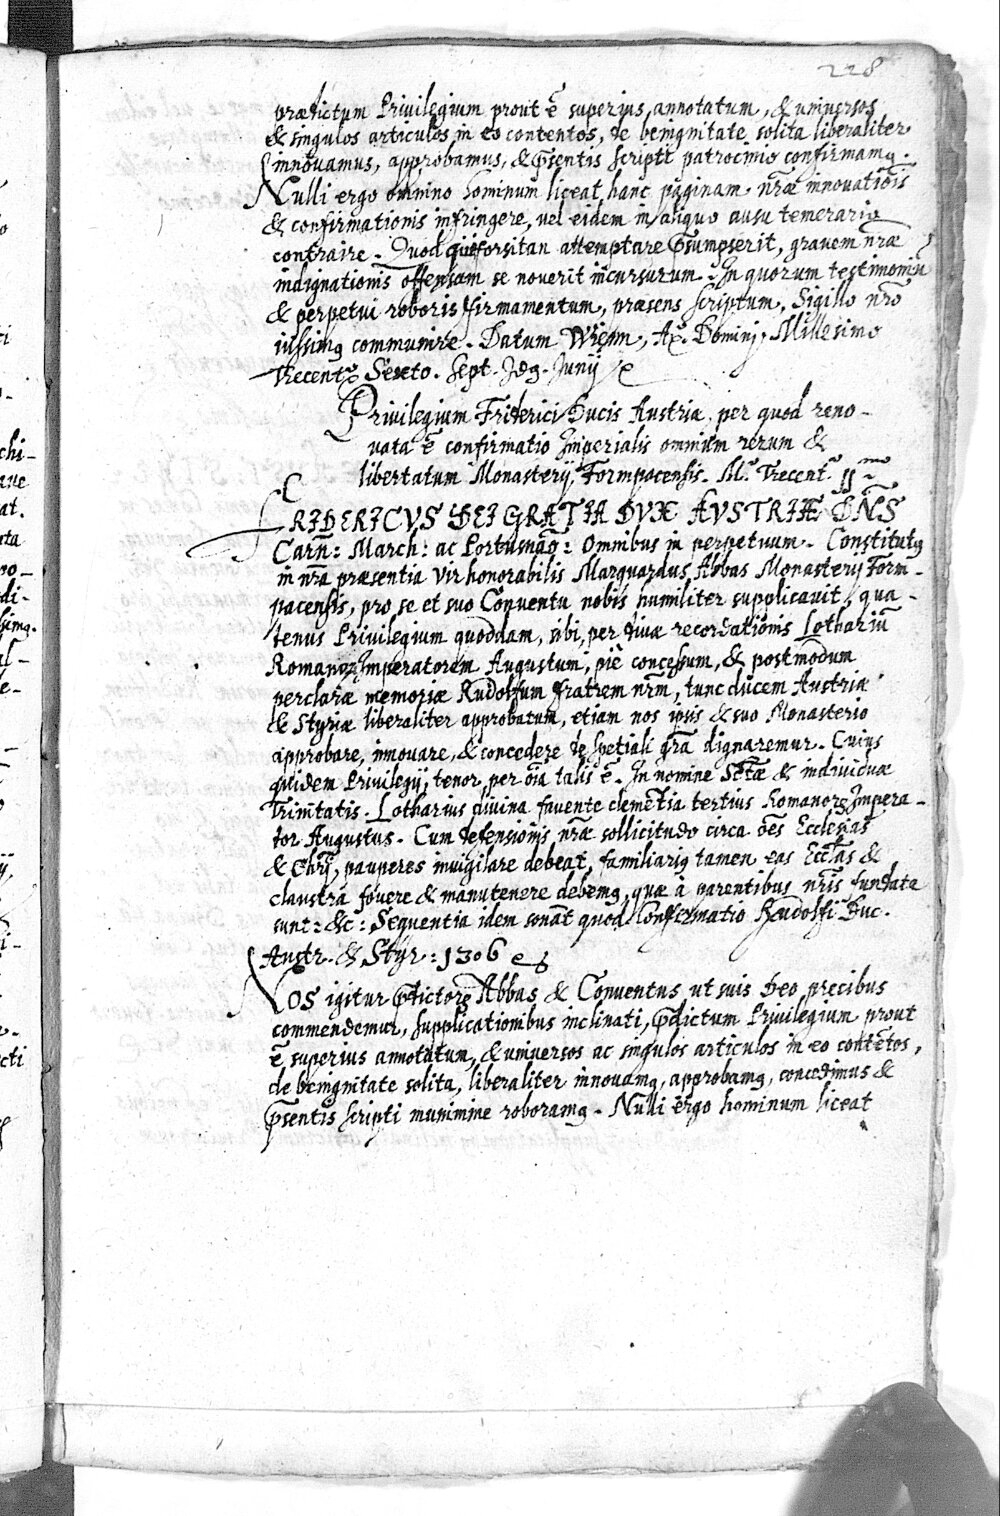 228
prædictum Privilegium prout ē superius annotatum, & universos
& singulos articulos in eo contentos, de benignitate solita liberaliter
innovamus, approbamus, & p̄sentis scripti patrocinio confirmamq.
Nulli ergo omnino hominum liceat hanc paginam nr̄æ innovationis
& confirmationis infringere, vel eidem in aliquo ausu temerario
contraire. Quod qui forsitan attemptare p̄sumpserit, gravem nr̄æ
indignationis offensam se noverit incursurum. In quorum testimoniū
& perpetui roboris firmamentum, præsens scriptum, Sigillo nr̄o
iussimq communire. Datum Wienn, Aō. Dominj, Millesimo
Trecentō Sexto. Sept. Idq. Junij
Privilegium Friderici Ducis Austriæ, per quod reno-
vata ē confirmatio Imperialis omnium rerum &
libertatum Monasterij Formpacensis. Mo. Trecent. II mo
FRIDERICVS DEI GRATIA DVX AVSTRIÆ DN̄S
Carn̄: March: ac Portusnāō: Omnibus in perpetuum. Constitutq
in nr̄a præsentia vir honorabilis Marquardus Abbas Monasterij Form-
pacensis, pro se et suo Conventu nobis humiliter supplicavit, qua-
tenus Privilegium quoddam, sibi, per divæ recordationis Lothariū
Romanoꝝ Imperatorem Augustum, piè concessum, & postmodum
perclaræ memoriæ Rudolfum fratrem nr̄m, tunc ducem Austriæ
& Styriæ liberaliter approbatum, etiam nos ipsis & suo Monasterio
approbare, innovare, & concedere de spetiali gr̄a dignaremur. Cuius
quidem Privilegij, tenor, per oīa talis ē. In nomine Sctæ & individuæ
Trinitatis. Lotharius divina favente clemētia tertius Romanoꝝ Impera-
tor Augustus. Cum defensionis nr̄æ sollicitudo circa oēs Ecclesias
& Chr̄j, pauperes invigilare debeat, familiariq tamen eas Eccl̄as &
claustra fovere & manutenere debemq, quæ à parentibus nr̄is fundata
sunt: &c: Sequentia idem sonāt quod Confirmatio Rudolfi Duc.
Austr. & Styr: 1306
NOS igitur p̄dictoꝝ Abbas & Conventus ut suis Deo precibus
commendemur, supplicationibus inclinati, p̄dictum Privilegium prout
ē superius annotatum, & universos ac singulos articulos in eo contētos,
de benignitate solita, liberaliter innovamq, approbamq, concedimus &
p̄sentis scripti munimine roboramq. Nulli ergo hominum liceat